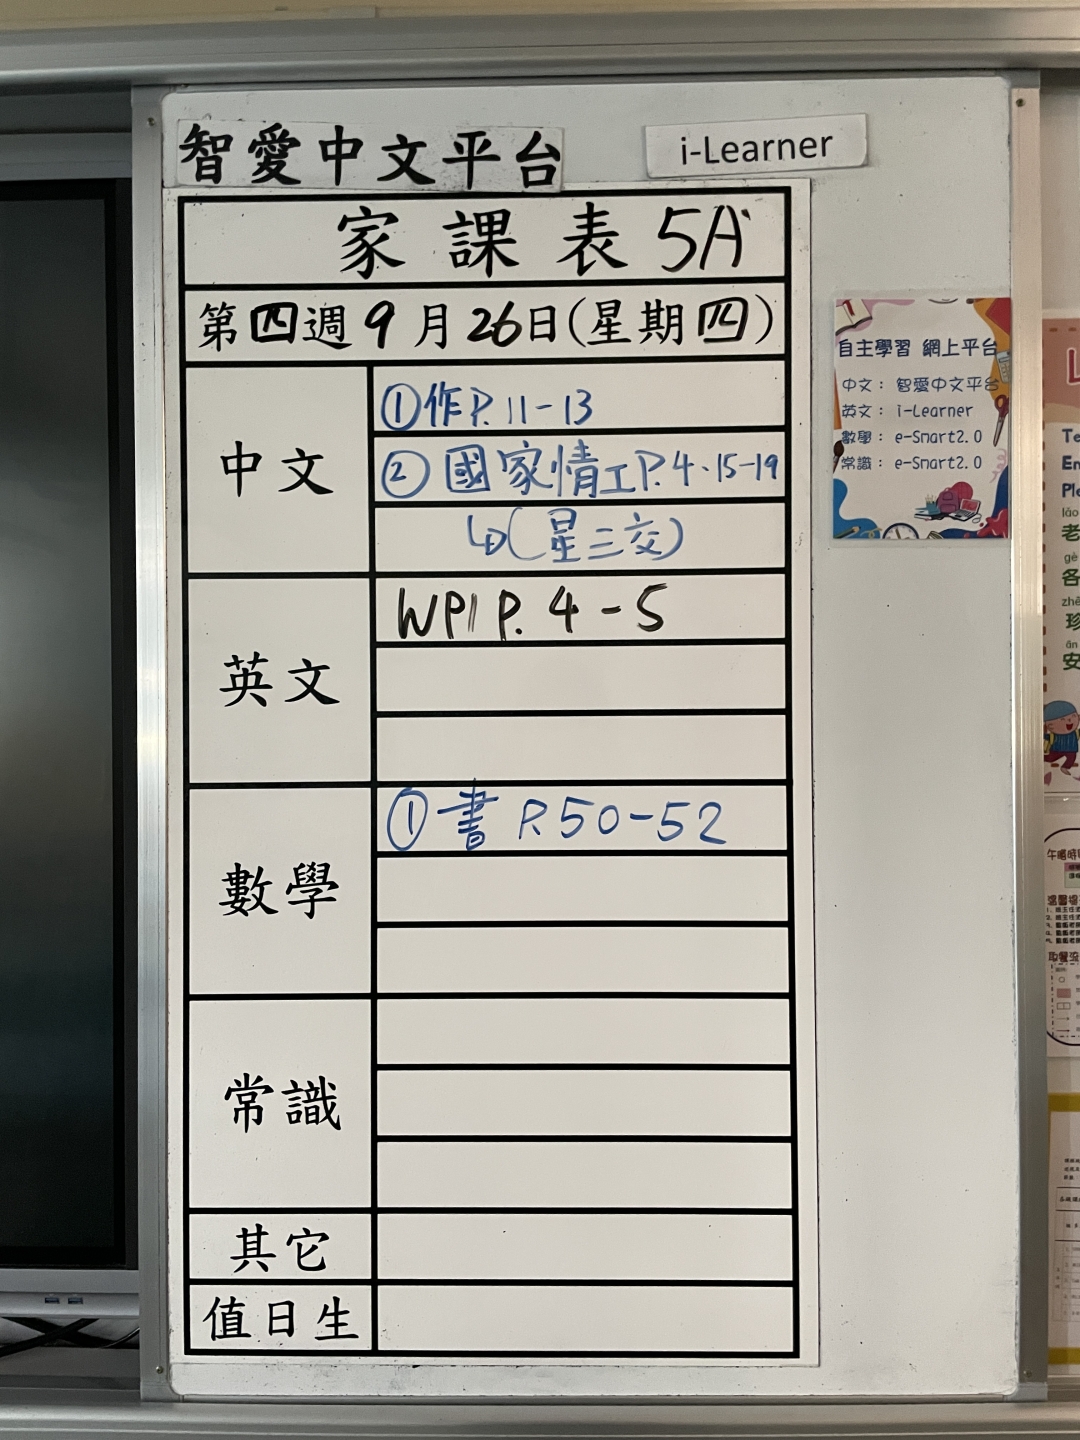 智愛中文平台
i-Learner
家課表 5A
第四週9月26日(星期四)
中文
①作P.11-13
②國家情工P.4、15-19
↳(星三交)
英文
WP1 P.4-5
數學
①書 P.50-52
常識
其它
值日生
自主學習 網上平台
中文： 智愛中文平台
英文： i-Learner
數學： e-Smart2.0
常識： e-Smart2.0
lǎo
老
gè
各
zhē
珍
ān
安